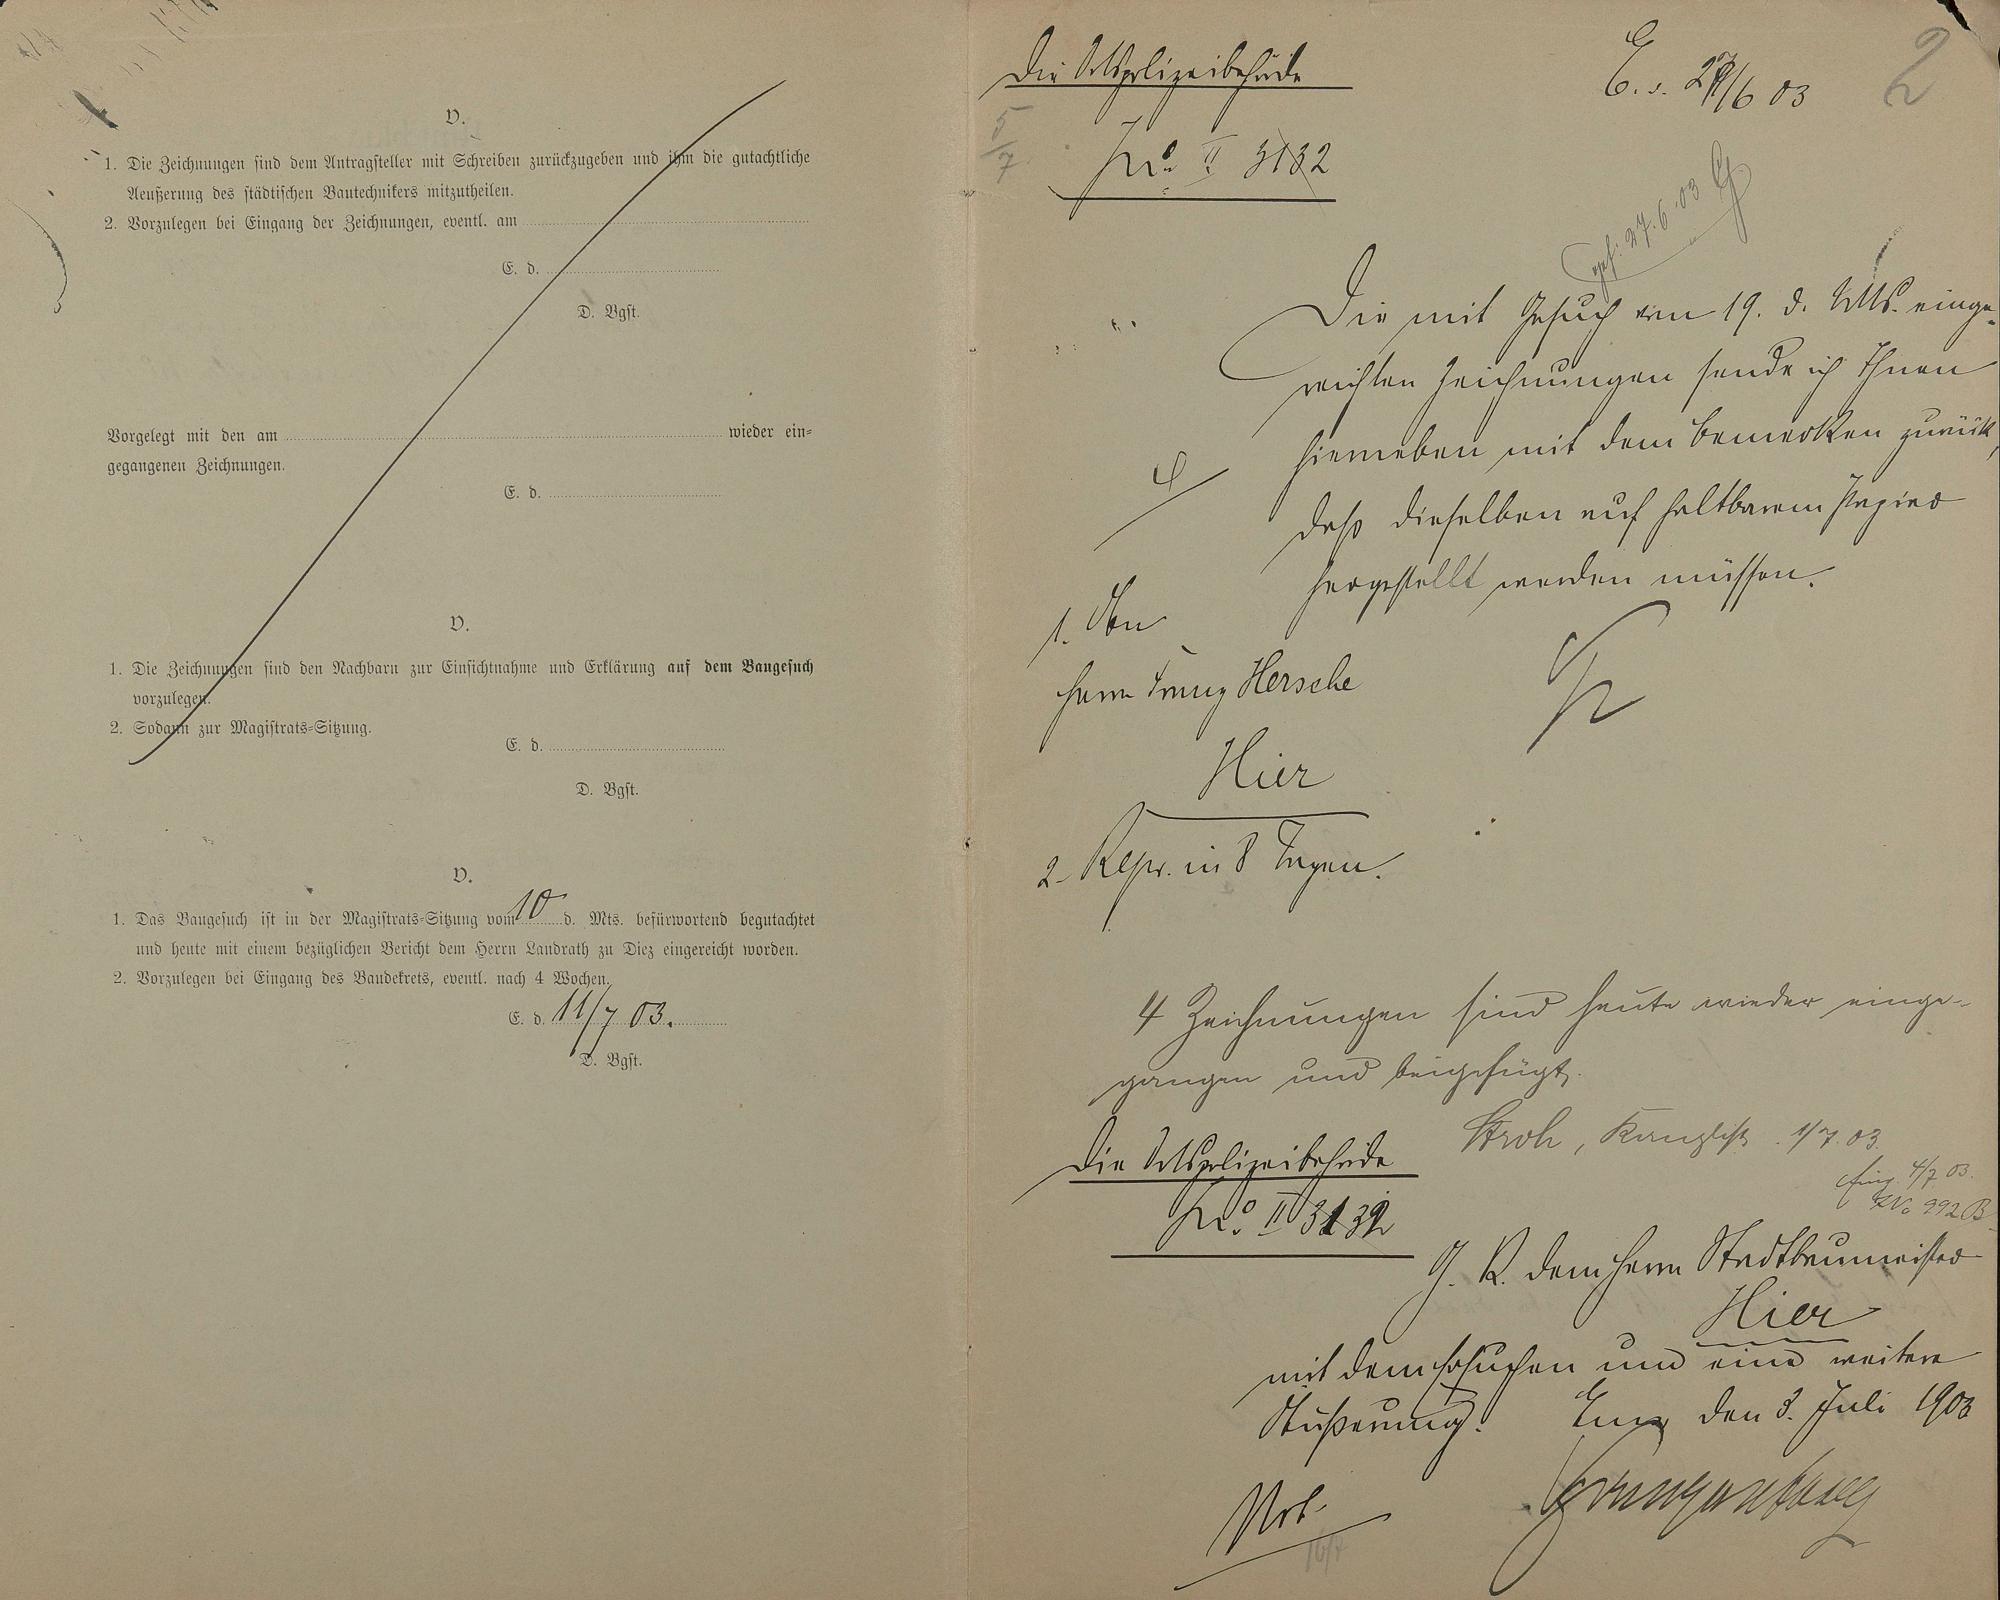 V.
1. Die Zeichnungen sind dem Antragsteller mit Schreiben zurückzugeben und ihm die gutachtliche
Aeußerung des städtischen Bautechnikers mitzutheilen.
2. Vorzulegen bei Eingang der Zeichnungen, eventl. am
E. d.
D. Bgst.
Vorgelegt mit den am wieder ein=
gegangenen Zeichnungen.
E. d.
V.
1. Die Zeichnungen sind den Nachbarn zur Einsichtnahme und Erklärung auf dem Baugesuch
vorzulegen.
2. Sodann zur Magistrats=Sitzung.
E. d.
D. Bgst.
V.
1. Das Baugesuch ist in der Magistrats=Sitzung vom 10 d. Mts. befürwortend begutachtet
und heute mit einem bezüglichen Bericht dem Herrn Landrath zu Diez eingereicht worden.
2. Vorzulegen bei Eingang des Baudekrets, eventl. nach 4 Wochen.
E. d. 11/7 03.
D. Bgst.
2
Die Ortspolizeibehörde
E. d. 27/6 03
5/7
Nro. II 3132
gef: 27.6.03
Die mit Gesuch vom 19. d. Mts. einge-
reichten Zeichnungen sende ich Ihnen
hierneben mit dem Bemerken zurück,
daß dieselben auf haltbarem Papier
hergestellt werden müssen.
1. An
Herrn Franz Hersche
Hier
2. Repr. in 8 Tagen.
4 Zeichnungen sind heute wieder einge-
gangen und beigefügt.
Stroh, Kanzlist. 1/7. 03.
Die Ortspolizeibehörde
Eing. 4/7 03.
No 992 B
Nro. II 3132
G. R. dem Herrn Stadtbaumeister
Hier
mit dem Ersuchen um eine weitere
Äußerung. Ems, den 3. Juli 1903